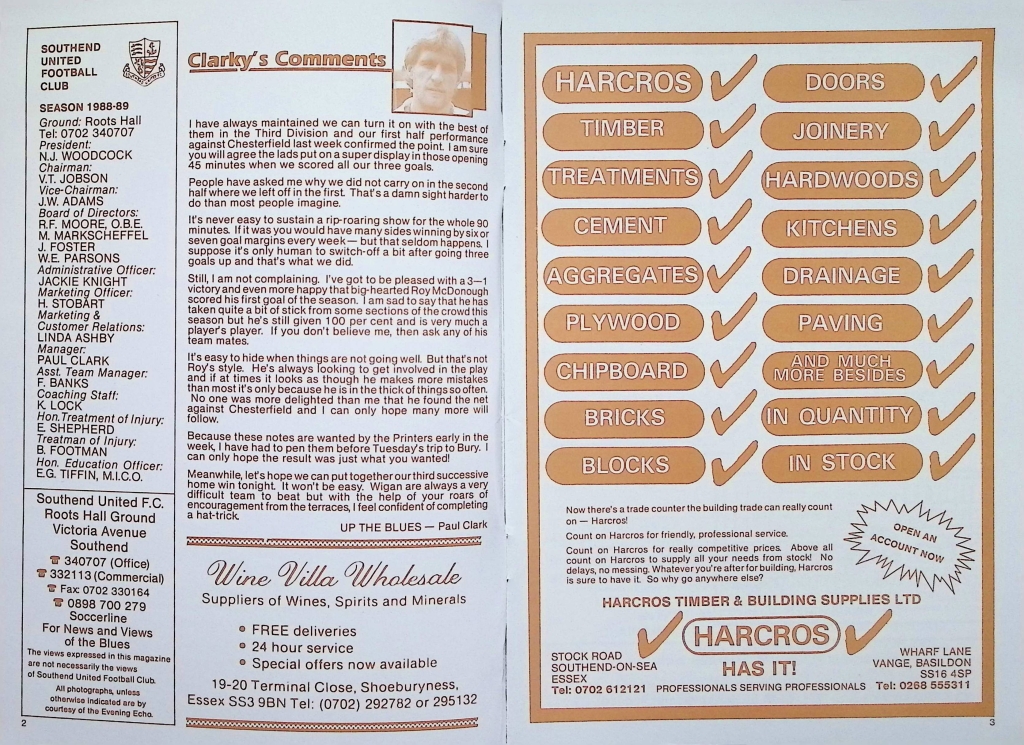 SOUTHEND
UNITED
FOOTBALL
CLUB
SEASON 1988-89
Ground: Roots Hall
Tel: 0702 340707
President:
N.J. WOODCOCK
Chairman:
V.T. JOBSON
Vice-Chairman:
J.W. ADAMS
Board of Directors:
R.F. MOORE, O.B.E.
M. MARKSCHEFFEL
J. FOSTER
W.E. PARSONS
Administrative Officer:
JACKIE KNIGHT
Marketing Officer:
H. STOBART
Marketing &
Customer Relations:
LINDA ASHBY
Manager:
PAUL CLARK
Asst. Team Manager:
F. BANKS
Coaching Staff:
K. LOCK
Hon. Treatment of Injury:
E. SHEPHERD
Treatman of Injury:
B. FOOTMAN
Hon. Education Officer:
E.G. TIFFIN, M.I.C.O.
Southend United F.C.
Roots Hall Ground
Victoria Avenue
Southend
☎ 340707 (Office)
☎ 332113 (Commercial)
☎ Fax: 0702 330164
☎ 0898 700 279
Soccerline
For News and Views
of the Blues
The views expressed in this magazine
are not necessarily the views
of Southend United Football Club.
All photographs, unless
otherwise indicated are by
courtesy of the Evening Echo.
2
Clarky's Comments
I have always maintained we can turn it on with the best of
them in the Third Division and our first half performance
against Chesterfield last week confirmed the point. I am sure
you will agree the lads put on a super display in those opening
45 minutes when we scored all our three goals.
People have asked me why we did not carry on in the second
half where we left off in the first. That's a damn sight harder to
do than most people imagine.
It's never easy to sustain a rip-roaring show for the whole 90
minutes. If it was you would have many sides winning by six or
seven goal margins every week — but that seldom happens. I
suppose it's only human to switch-off a bit after going three
goals up and that's what we did.
Still, I am not complaining. I've got to be pleased with a 3—1
victory and even more happy that big-hearted Roy McDonough
scored his first goal of the season. I am sad to say that he has
taken quite a bit of stick from some sections of the crowd this
season but he's still given 100 per cent and is very much a
player's player. If you don't believe me, then ask any of his
team mates.
It's easy to hide when things are not going well. But that's not
Roy's style. He's always looking to get involved in the play
and if at times it looks as though he makes more mistakes
than most it's only because he is in the thick of things so often.
No one was more delighted than me that he found the net
against Chesterfield and I can only hope many more will
follow.
Because these notes are wanted by the Printers early in the
week, I have had to pen them before Tuesday's trip to Bury. I
can only hope the result was just what you wanted!
Meanwhile, let's hope we can put together our third successive
home win tonight. It won't be easy. Wigan are always a very
difficult team to beat but with the help of your roars of
encouragement from the terraces, I feel confident of completing
a hat-trick.
UP THE BLUES — Paul Clark
Wine Villa Wholesale
Suppliers of Wines, Spirits and Minerals
• FREE deliveries
• 24 hour service
• Special offers now available
19-20 Terminal Close, Shoeburyness,
Essex SS3 9BN Tel: (0702) 292782 or 295132
HARCROS ✓ DOORS ✓
TIMBER ✓ JOINERY ✓
TREATMENTS ✓ HARDWOODS ✓
CEMENT ✓ KITCHENS ✓
AGGREGATES ✓ DRAINAGE ✓
PLYWOOD ✓ PAVING ✓
CHIPBOARD ✓ AND MUCH
MORE BESIDES ✓
BRICKS ✓ IN QUANTITY ✓
BLOCKS ✓ IN STOCK ✓
Now there's a trade counter the building trade can really count
on — Harcros!
Count on Harcros for friendly, professional service.
Count on Harcros for really competitive prices. Above all
count on Harcros to supply all your needs from stock! No
delays, no messing. Whatever you're after for building, Harcros
is sure to have it. So why go anywhere else?
OPEN AN
ACCOUNT NOW
HARCROS TIMBER & BUILDING SUPPLIES LTD
✓ HARCROS ✓
HAS IT!
STOCK ROAD
SOUTHEND-ON-SEA
ESSEX
Tel: 0702 612121
PROFESSIONALS SERVING PROFESSIONALS
WHARF LANE
VANGE, BASILDON
SS16 4SP
Tel: 0268 555311
3